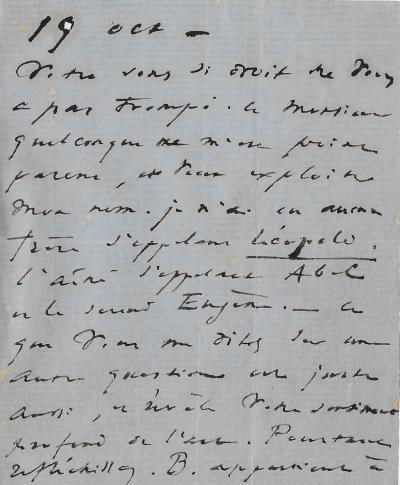 19 oct —
Votre sens si droit ne vous
a pas trompé. Ce monsieur
quelconque ne m'est point
parent, et veut exploiter
mon nom. je n'ai eu aucun
frère s'appelant Léopold.
l'aîné s'appelait Abel
et le second Eugène. — ce
que vous me dites sur une
autre question est juste
aussi, et révèle votre sentiment
profond de l'art. Pourtant
réfléchissez. B. appartient à